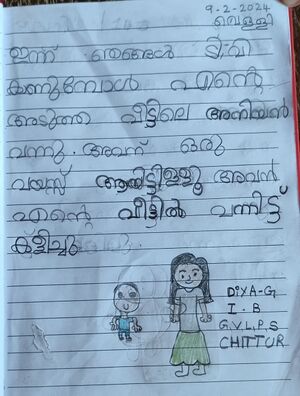 9-2-2024
വെള്ളി
ഇന്ന് ഞങ്ങൾ ടി.വി
കണുമ്പോൾ എന്റെ
അടുത്ത വീട്ടിലെ അനിയൻ
വന്നു. അവന് ഒരു
വയസ്സ് ആയിട്ടിള്ളൂ അവൻ
എന്റെ വീട്ടിൽ വന്നിട്ട്
കളിച്ചു
DiYA-G
I.B
G.V.L.P.S
CHITTUR